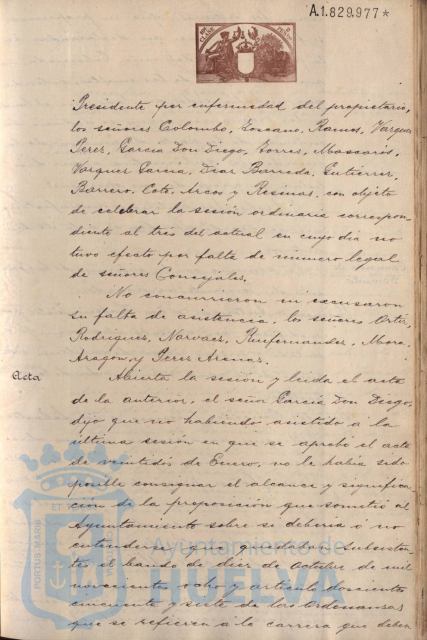 A.1.829.977*
Presidente por enfermedad del propietario,
los señores Colombo, Toscano, Ramos, Vazquez
Perez, García Don Diego, Torres, Mascarós,
Vazquez García, Diaz Barreda, Gutierrez,
Barrero, Coto, Arcos y Resinas, con objeto
de celebrar la sesión ordinaria correspon-
diente al tres del actual en cuyo dia no
tuvo efecto por falta de número legal
de señores Concejales.
No concurrieron ni excusaron
su falta de asistencia, los señores Ortiz,
Rodriguez, Narvaez, Ruifernandez, Mora,
Aragón, y Perez Arenas.
Acta
Abierta la sesión y leida el acta
de la anterior, el señor García Don Diego,
dijo que no habiendo asistido a la
última sesión en que se aprobó el acta
de veintidos de Enero, no le habia sido
posible consignar el alcance y significa-
ción de la proposición que sometió al
Ayuntamiento sobre si deberia ó no
entenderse que quedaban subsisten-
tes el bando de diez de Octubre de mil
novecientos ocho y artículo doscientos
cincuenta y siete de las Ordenanzas
que se refieren á la carrera que deben
PORTUS MARIS
Ayuntamiento de
HUELVA